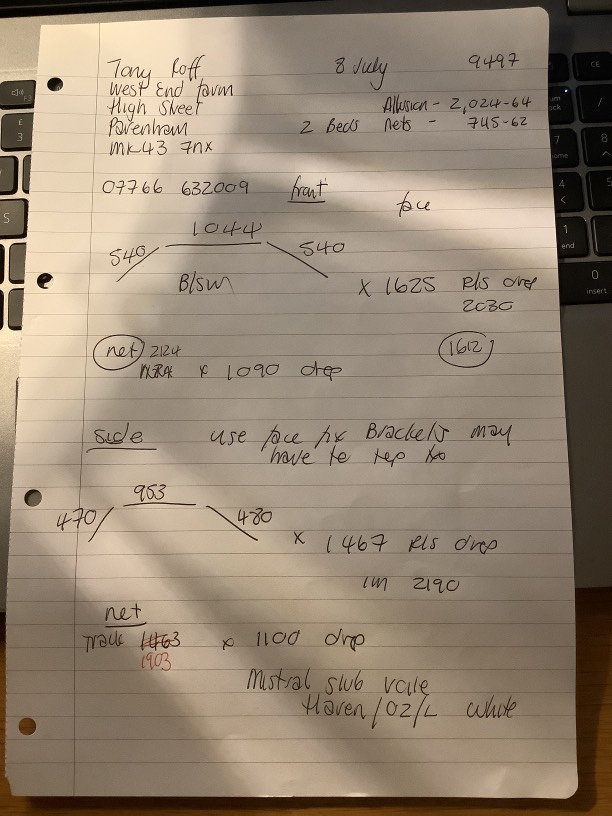 Tony Roff
West End Farm
High Street
Pavenham
MK43 7NX
8 July
9497
Allusion - 2,024-64
2 Beds nets - 745-62
07766 632009
front
face
540 1044 540
B/sun
x 1625 Rls drop
2030
net 2124
x 1090 drop
1612
side
use face fix Brackets may
have to rep
953
470 480
x 1467 Rls drop
2190
net
Track 1463 x 1100 drop
1903
Mistral slub voile
Haven/02/L white